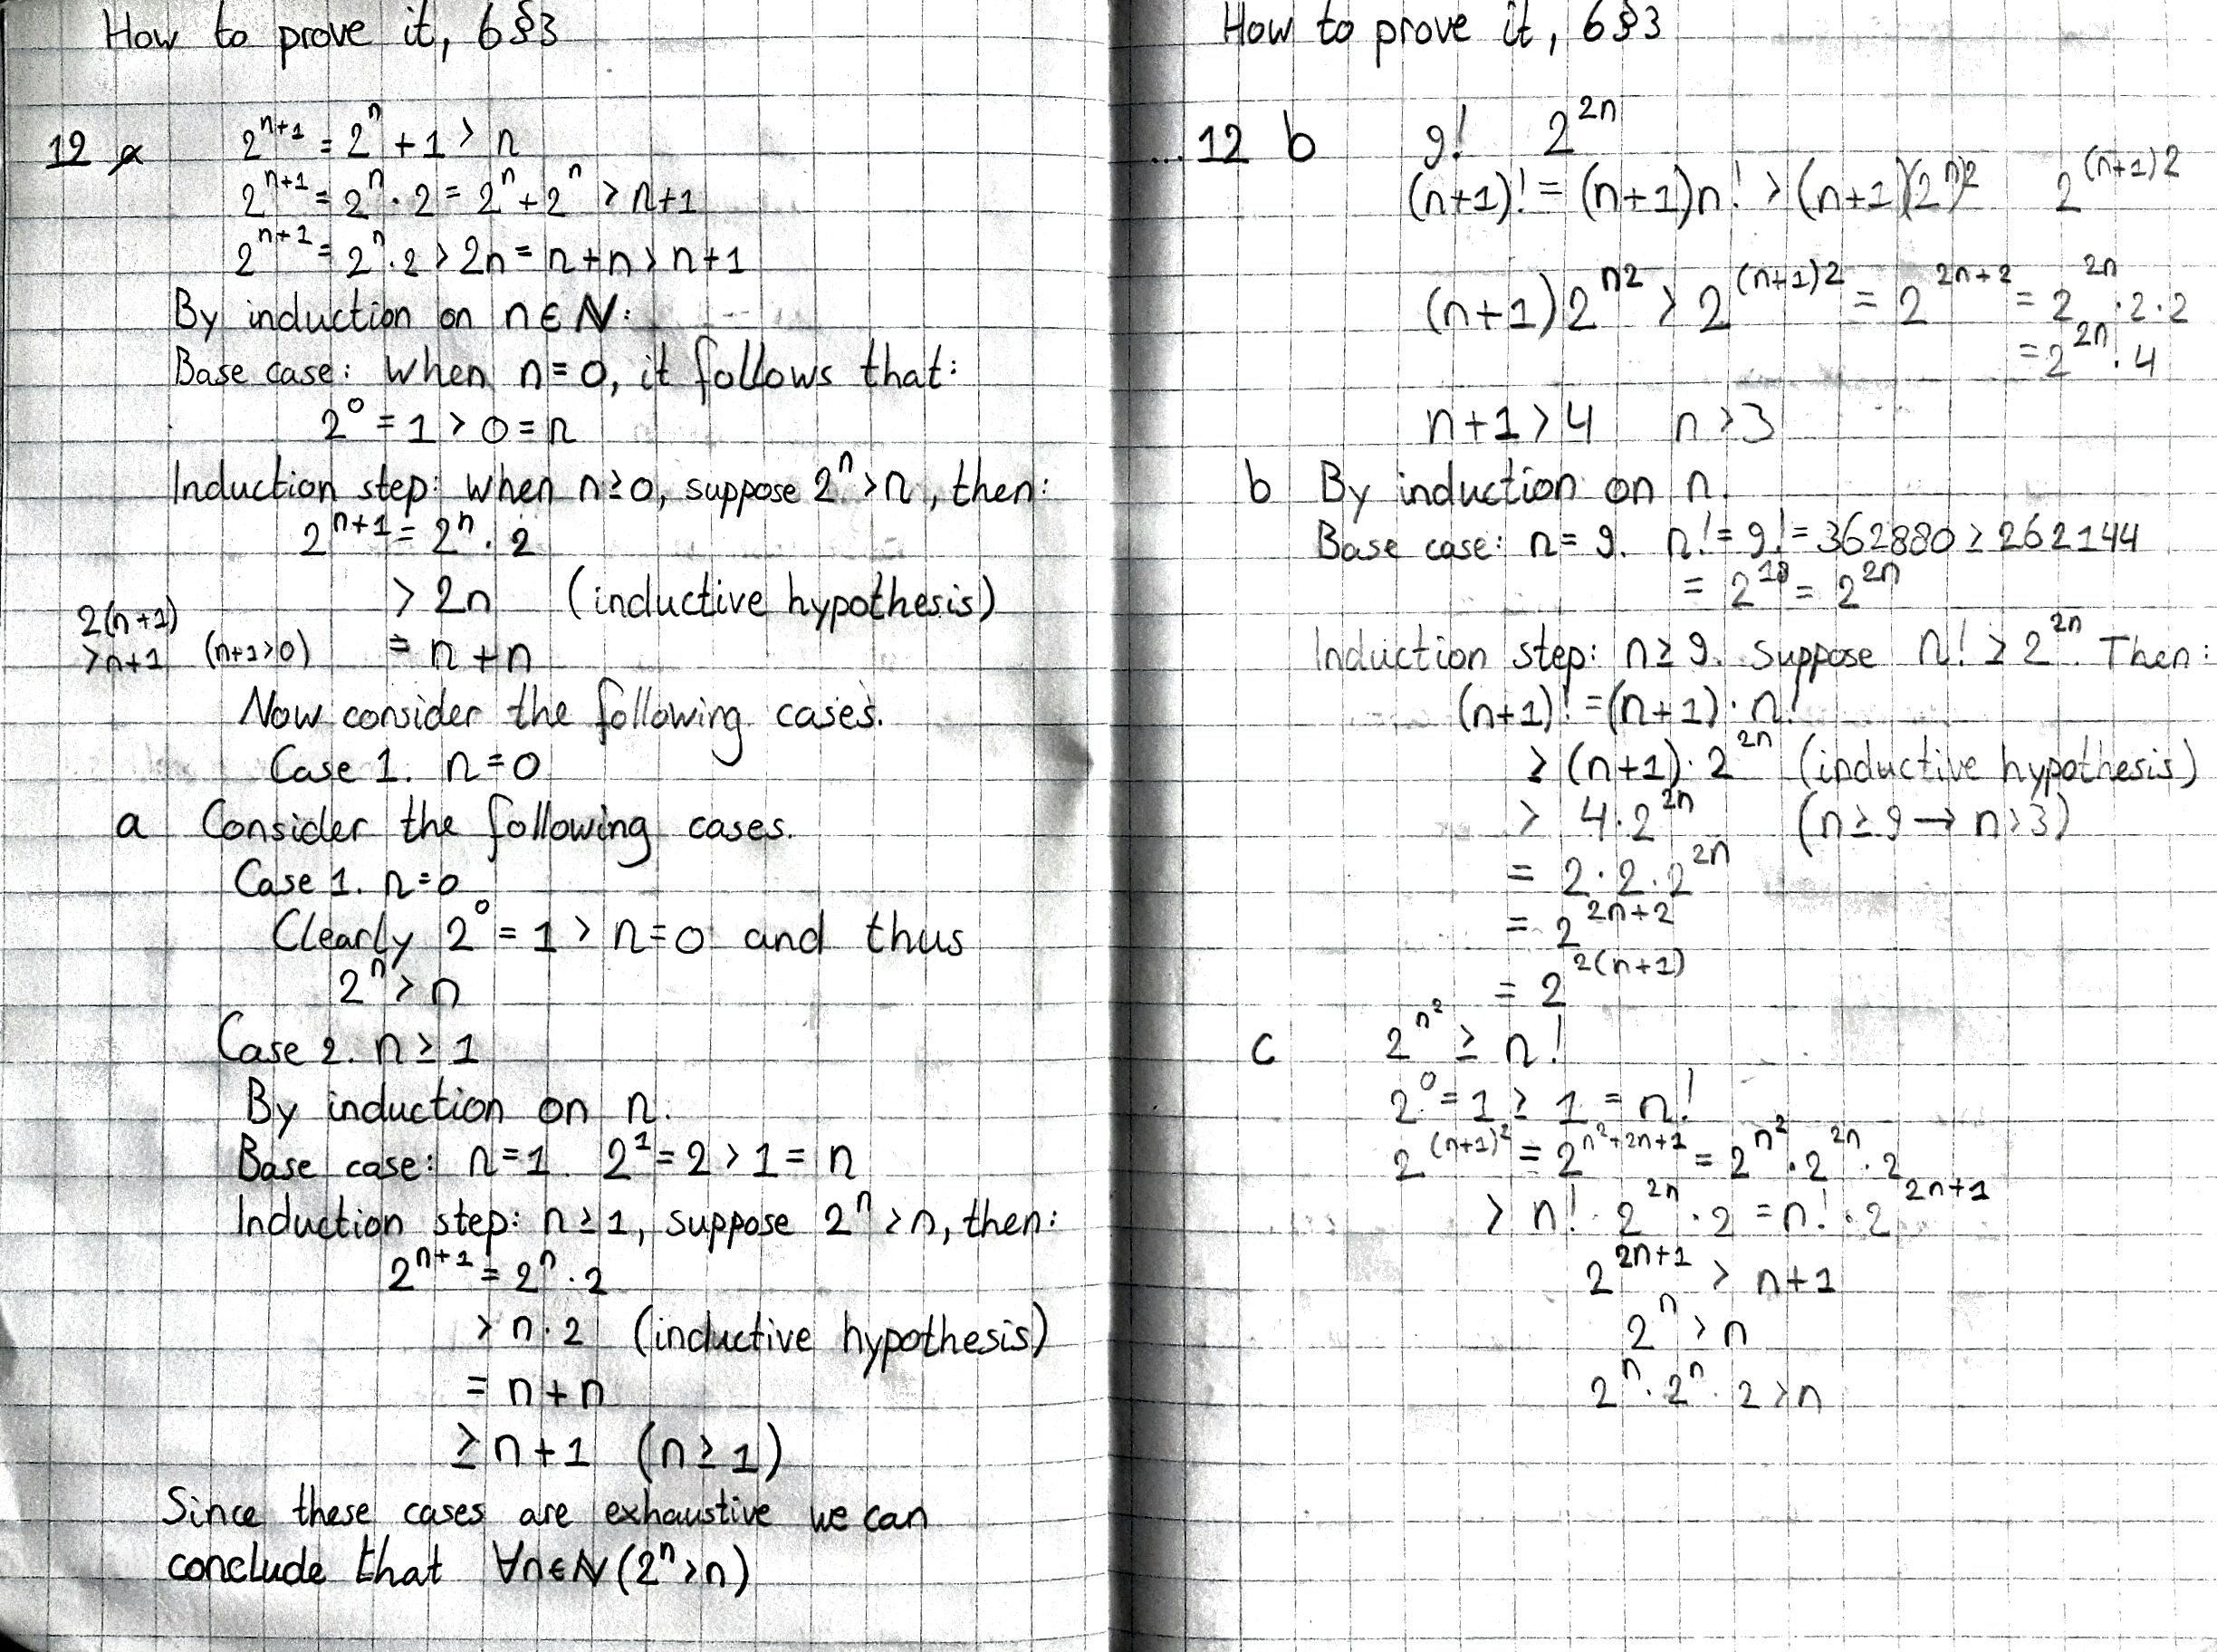 How to prove it, 6§3
12 a 2^{n+1} = 2^n + 1 > n
2^{n+1} = 2^n · 2 = 2^n + 2^n > n+1
2^{n+1} = 2^n · 2 > 2n = n+n > n+1
By induction on n∈ℕ:
Base case: when n=0, it follows that:
2^0 = 1 > 0 = n
Induction step: when n≥0, suppose 2^n > n, then:
2^{n+1} = 2^n · 2
> 2n (inductive hypothesis)
2(n+1)
>n+1 (n+1>0) = n+n
Now consider the following cases.
Case 1. n=0
a Consider the following cases.
Case 1. n=0
Clearly 2^0 = 1 > n=0 and thus
2^n > n
Case 2. n ≥ 1
By induction on n.
Base case: n=1. 2^1 = 2 > 1 = n
Induction step: n≥1, suppose 2^n > n, then:
2^{n+1} = 2^n · 2
> n·2 (inductive hypothesis)
= n+n
≥ n+1 (n≥1)
Since these cases are exhaustive we can
conclude that ∀n∈ℕ(2^n>n)
How to prove it, 6§3
...12 b 9! 2^{2n}
(n+1)! = (n+1)n! > (n+1)(2^n)^2 2^{(n+1)2}
(n+1)2^{n2} > 2^{(n+1)2} = 2^{2n+2} = 2^{2n}·2·2
= 2^{2n}·4
n+1>4 n>3
b By induction on n.
Base case: n=9. n! = 9! = 362880 ≥ 262144
= 2^{18} = 2^{2n}
Induction step: n≥9. Suppose n! ≥ 2^{2n}. Then:
(n+1)! = (n+1)·n!
≥ (n+1)·2^{2n} (inductive hypothesis)
> 4·2^{2n} (n≥9→n>3)
= 2·2·2^{2n}
= 2^{2n+2}
= 2^{2(n+1)}
c 2^{n^2} ≥ n!
2^0 = 1 ≥ 1 = n!
2^{(n+1)^2} = 2^{n^2+2n+1} = 2^{n^2}·2^{2n}·2
> n!·2^{2n}·2 = n!·2^{2n+1}
2^{2n+1} > n+1
2^n > n
2^n·2^n·2 > n